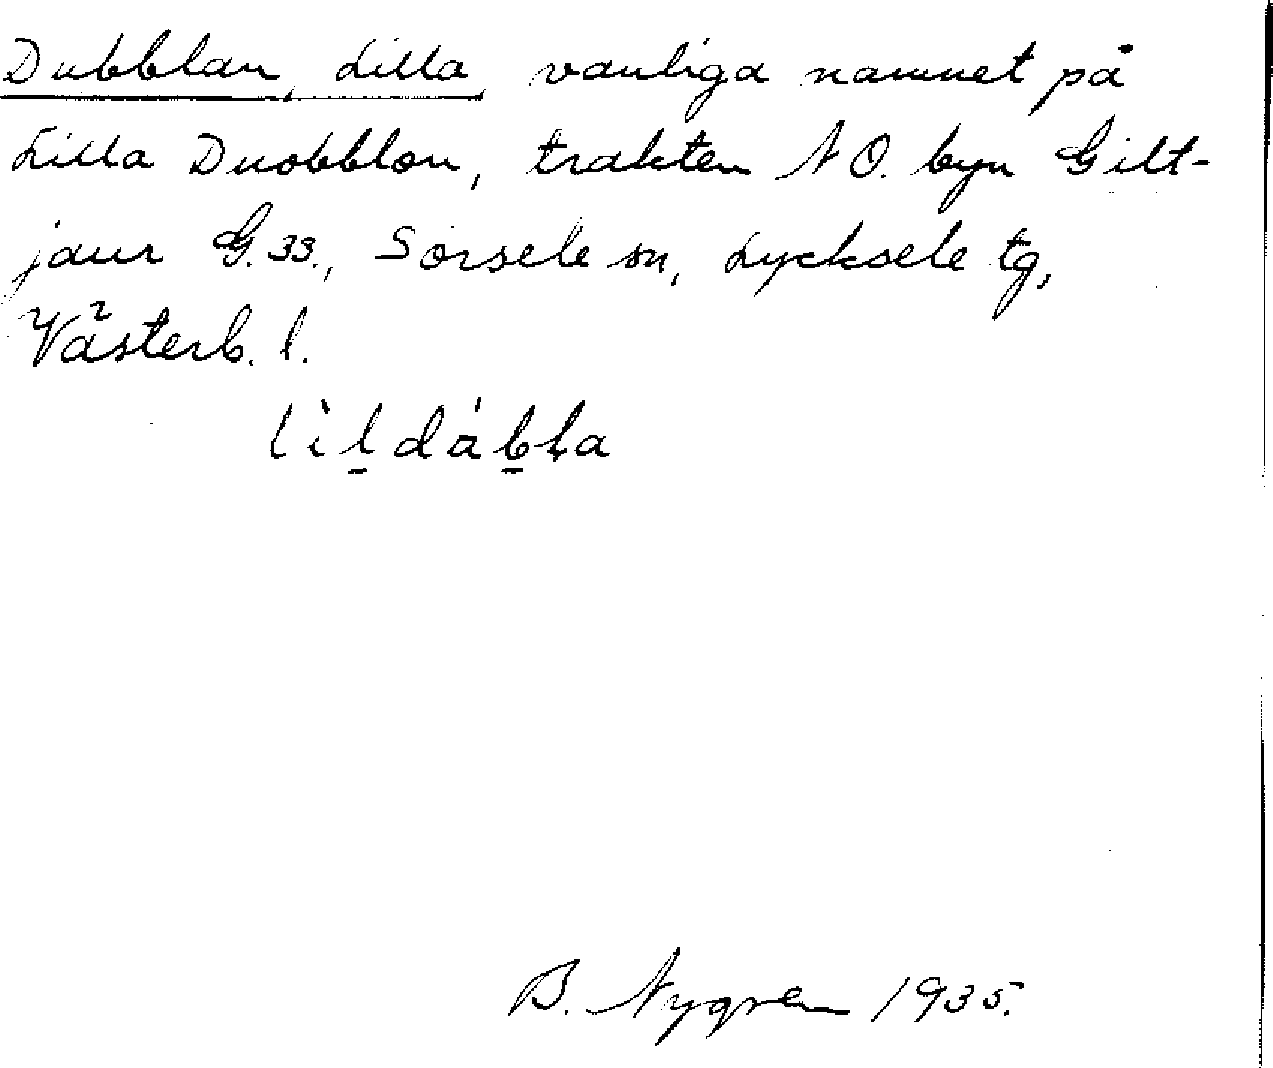 Dubblan, Lilla, vanliga namnet på
Lilla Duobblon, trakten NO. byn Gilt-
jaur G.33., Sorsele sn, Lycksele tg,
Västerb. l.
lìldábla
B. Nygren 1935.